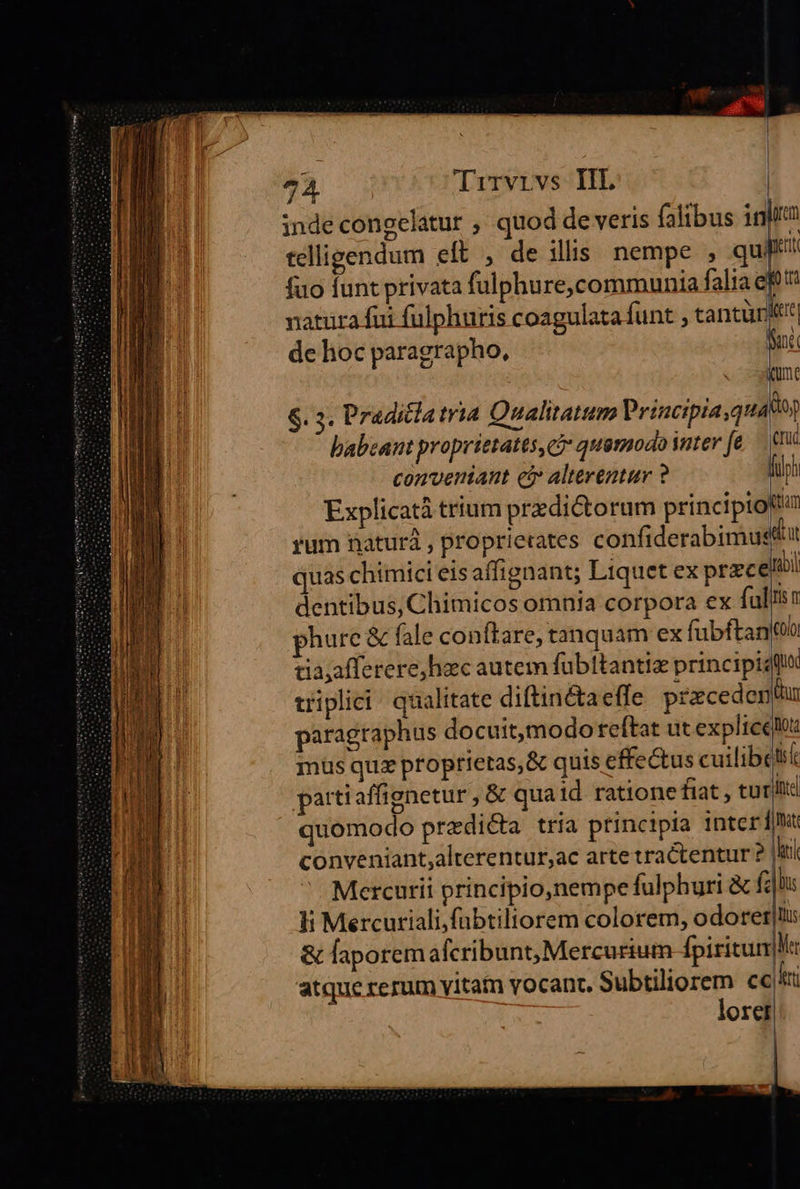 74 TITVLVS III.
inde congelatur , quod de veris ſalibus in
telligendum eſt , de illis nempe , qu
ſuo ſunt privata ſulphure,communia ſalia e
natura ſui ſulphuris coagulata ſunt , tantùm
de hoc paragrapho,
§. 3. Prædicta tria Qualitatum Principia,qua
habeant proprietates,& quomodo inter ſe
conveniant & alterentur ?
Explicatâ trium prædictorum principio
rum naturâ , proprietates conſiderabimus
quas chimici eis aſſignant; Liquet ex præce
dentibus, Chimicos omnia corpora ex ſul
phure & ſale conſtare, tanquam ex ſubſtan
tia,aſſerere,hæc autem ſubſtantiæ principia
triplici qualitate diſtincta eſſe præceden
paragraphus docuit,modo reſtat ut explice
mus quæ proprietas,& quis effectus cuilibet
parti aſſignetur , & qua id ratione fiat , tu
quomodo prædicta tria principia inter ſ
conveniant,alterentur,ac arte tractentur ?
Mercurii principio,nempe ſulphuri & ſa
li Mercuriali,ſubtiliorem colorem, odorem
& ſaporem aſcribunt,Mercurium ſpiritum
atque rerum vitam vocant. Subtiliorem co
lorem